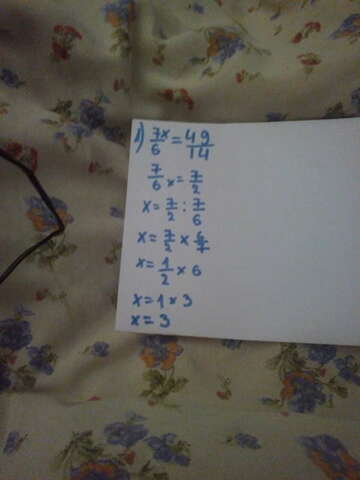 1) 7x/6 = 49/14
7/6 x = 7/2
x = 7/2 : 7/6
x = 7/2 × 6/7
x = 1/2 × 6
x = 1 × 3
x = 3